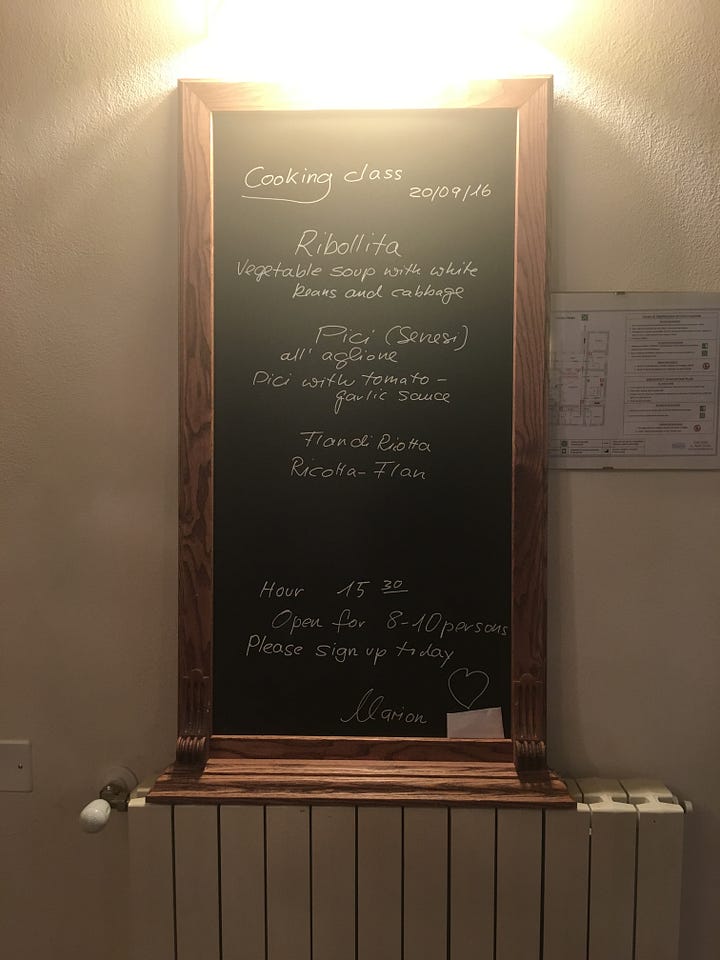 Cooking class
20/09/16
Ribollita
Vegetable soup with white
beans and cabbage
Pici (Senesi)
all' aglione
Pici with tomato -
garlic sauce
Flan di Riotta
Ricotta-Flan
Hour 15 30
Open for 8-10 persons
Please sign up today
Marion